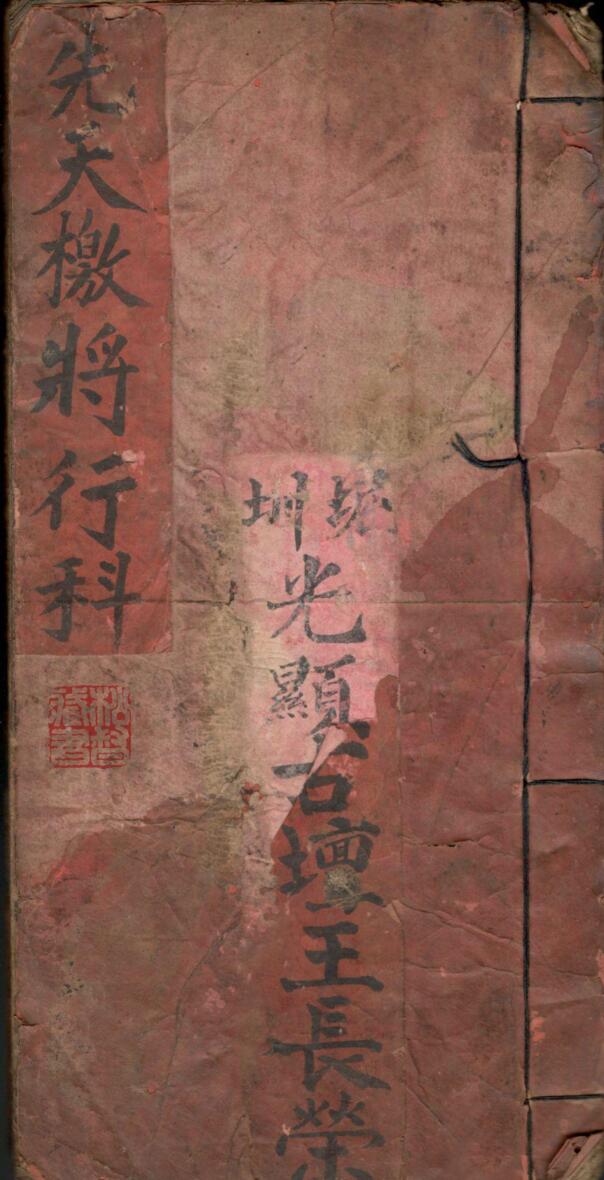 圳
光顯古壇王長榮
先天檄將行科
藏書